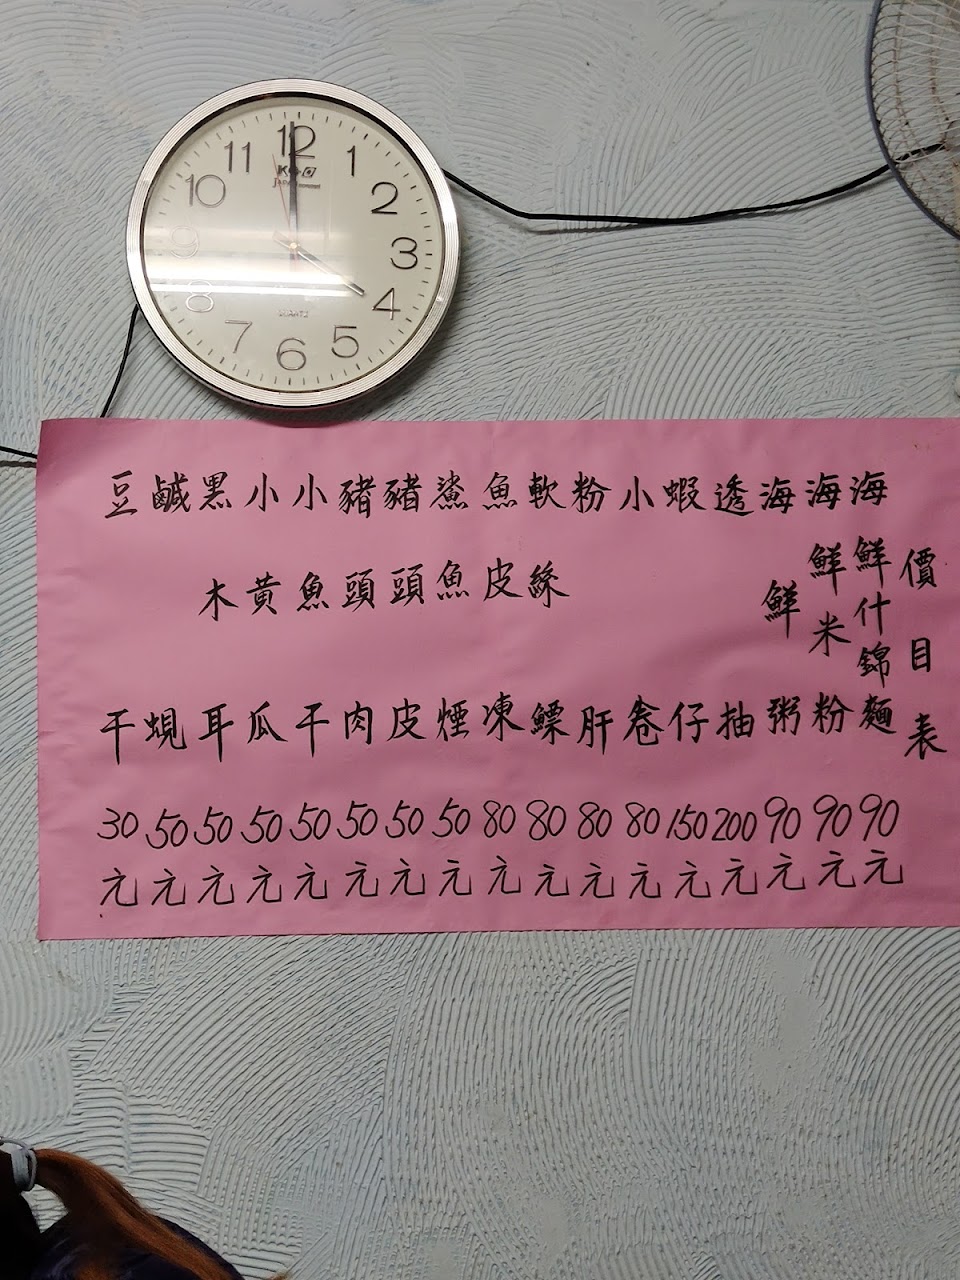 12
1
2
3
4
5
6
7
8
9
10
11
QUARTZ
價目表
海鮮什錦麵 90元
海鮮米粉 90元
海鮮粥 90元
透抽 200元
蝦仔 150元
小卷 80元
粉肝 80元
軟絲鰾 80元
魚皮凍 80元
鯊魚煙 50元
豬頭皮 50元
豬頭肉 50元
小魚干 50元
小黃瓜 50元
黑木耳 50元
鹹蜆 50元
豆干 30元